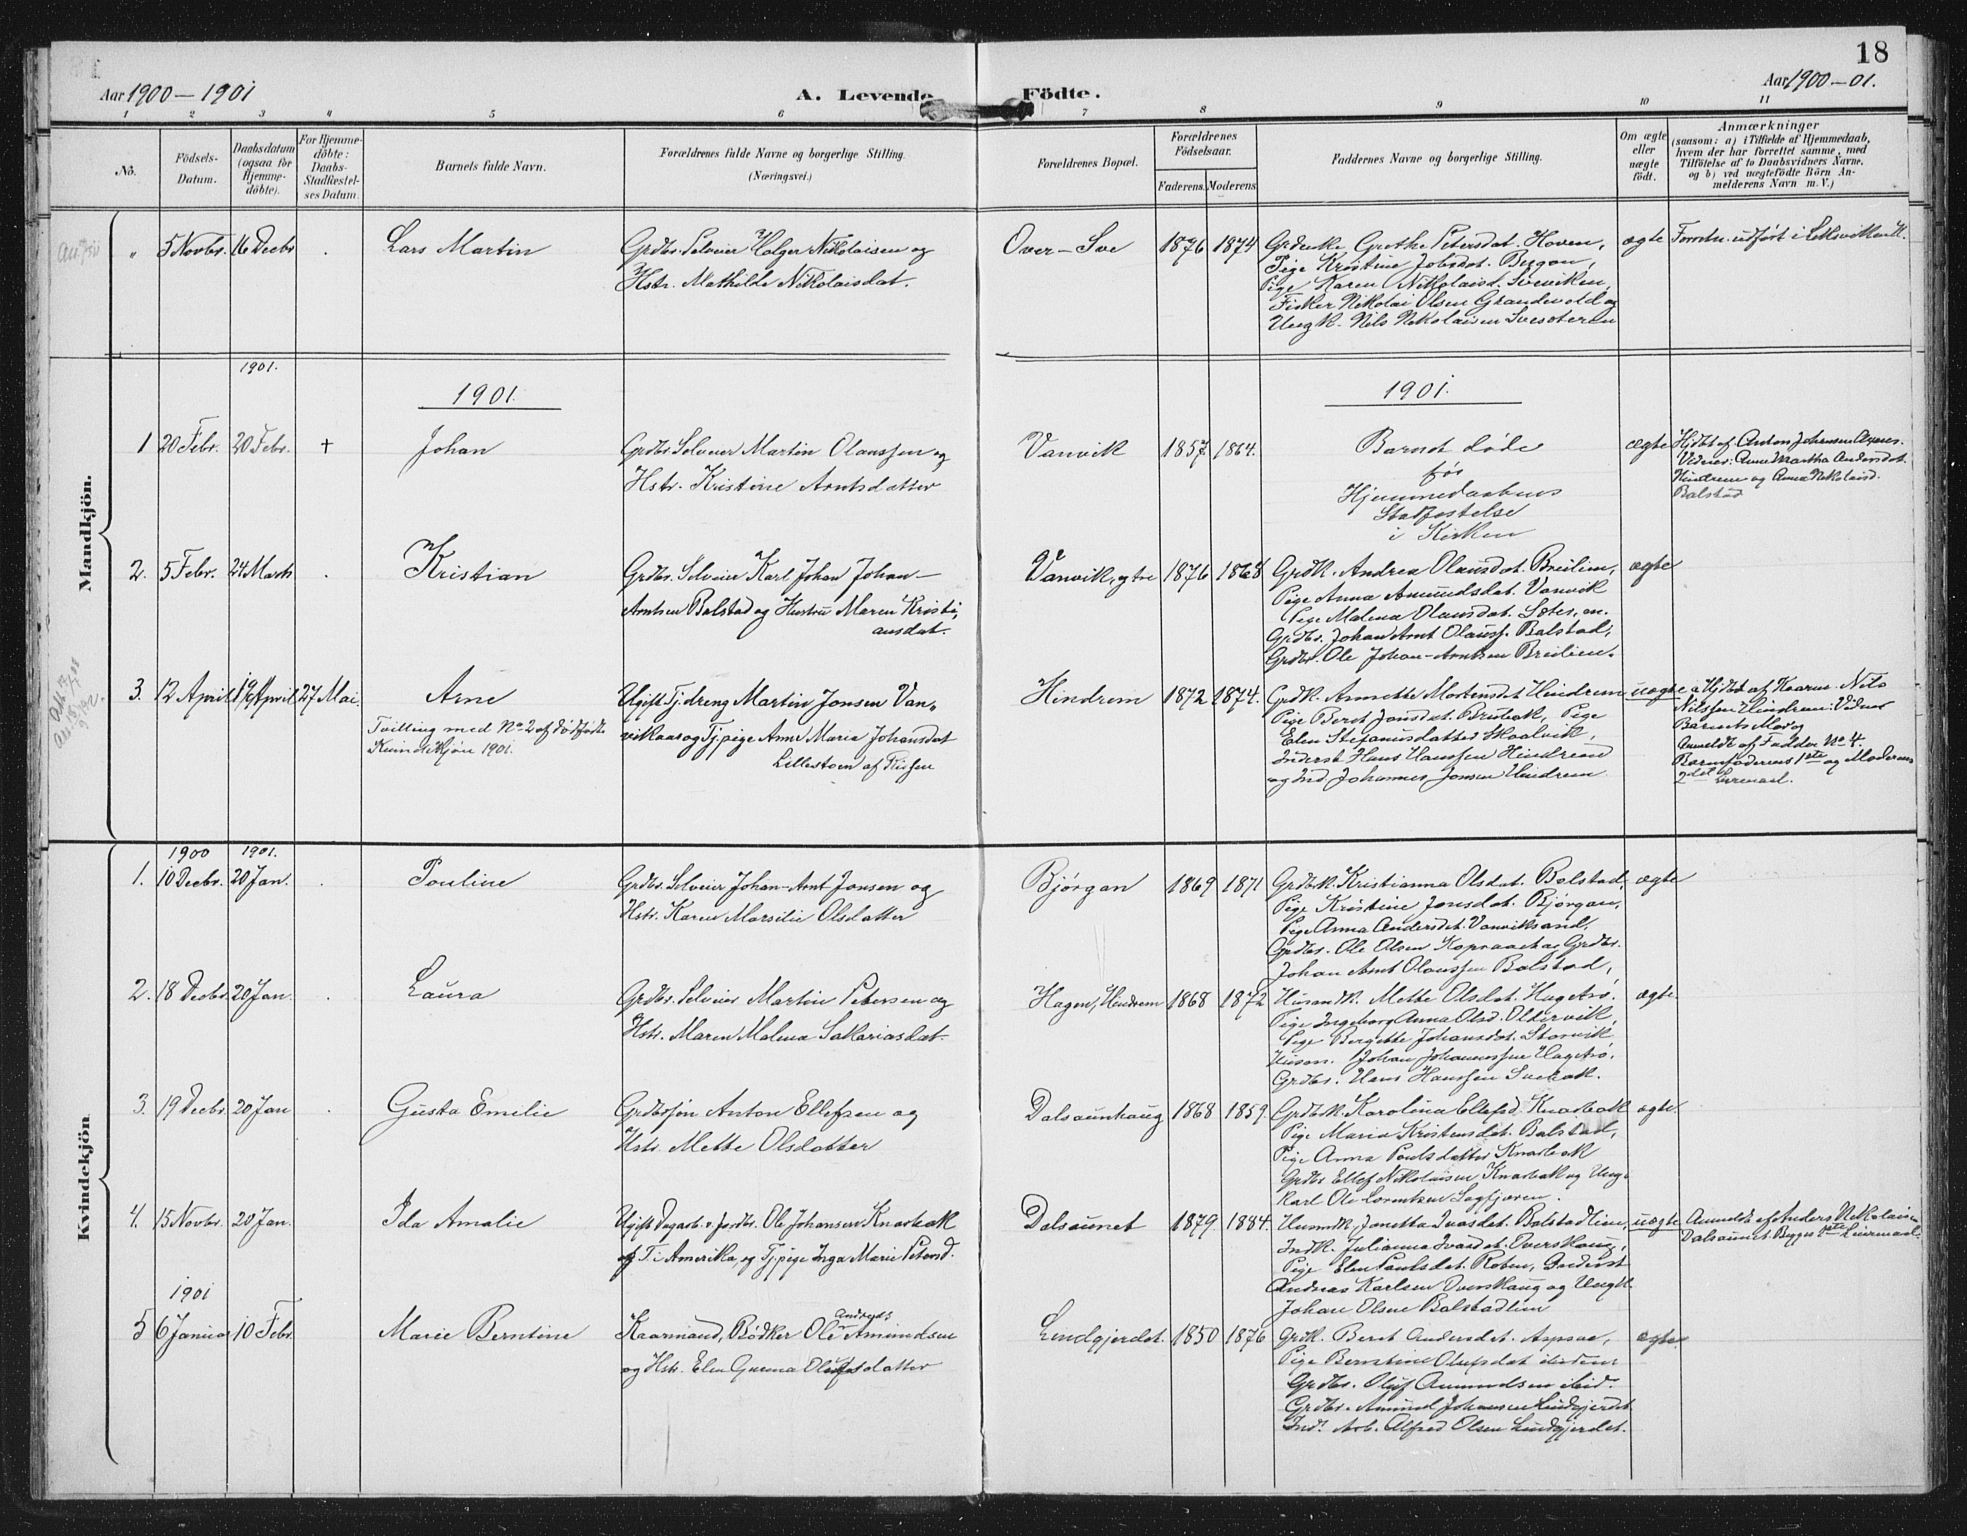 18
Aar 1900 – 1901
A. Levende Födte.
Aar 1900 – 01.
1 2 3 4 5 6 7 8 9 10 11
No.
Födsels-Datum.
Daabsdatum (ogsaa for Hjemmedöbte).
For Hjemmedöbte: Daabs-Stadfæstelses Datum.
Barnets fulde Navn.
Forældrenes fulde Navne og borgerlige Stilling. (Næringsvei.)
Forældrenes Bopæl.
Forældrenes Födselsaar.
Faderens. Moderens.
Faddernes Navne og borgerlige Stilling.
Om ægte eller uægte födt.
Anmærkninger
(saasom: a) i Tilfælde af Hjemmedaab,
hvem der har forrettet samme, med
Tilföielse af to Daabsvidners Navne,
og b) ved uægtefödte Börn Anmelderens Navn m. V.)
Mandkjön.
" 5 Novbr. 16 Decbr . Lars Martin
Grdbr. Selveier Holger Nikolaisen og
Hstr. Mathilde Nikolaisdat.
Over-Sve 1876 1874
Grdbrke Grethe Petersdat. Hoven,
Pige Kristine Jobsdat.
Pige Karen Nikolaisd. Sveviken,
Fisker Nikolai Olsen Grandevold og
Ungk. Nils Nikolaisen
ægte
1901.
1901.
1901.
1 20 Febr. 20 Febr. + Johan
Grdbr. Selveier Martin Olaussen og
Hstr. Kristine Arntsdatter
Vanvik 1857 1864.
Barnet døde
før
Hjemmedaabens
Stadfæstelse
i Kirken
ægte
Hjdbt af Anton Johansen
Vidner: Anne Martha Andersdat.
Hindrem og Anna Nikolaisd.
Balstad
2. 5 Febr. 24 Marts . Kristian
Grdbr. Selveier Karl Johan Johan-
Arntsen Balstad og Hustru Maren Kristi-
ansdat.
Vanvik, ytre 1876 1868
Grdk. Andrea Olausdat. Breilien,
Pige Anna Amundsdat. Vanvik
Pige Malena Olausdat. Sæter, en.
Grdbr. Johan Arnt Olauss. Balstad,
Grdbr. Ole Johan-Arntsen Breilien.
ægte
3. 12 April 19 April 27 Mai. Arne
Tvilling med No 2 af dødfødte
Kvindekjøn 1901.
Ugift Tj.dreng Martin Jonsen Van-
vikaar og Tj.pige Anne Maria Johansdat
Lillestoen af Rissen
Hindrem 1872 1874.
Grdk. Annette Mortensdat. Hindrem
Pige Beret Jonsdat. Brubak, Pige
Elen Stefanusdatter Skaalvik,
Inderst Hans Hanssen Hindrem
og Ind. Johannes Jonsen Hindrem
uægte
a Hjdbt af Kaarm. Nils
Nilssen Hindrem: Vidner
Barnets Mor og
Anmeldt af Fadder No 4.
Barnefaderens 1ste og Moderens
2det Leiermaal.
Kvindekjön
1900 1901.
1. 10 Decbr. 20 Jan. . Pouline
Grdbr. Selveier Johan-Arnt Jonsen og
Hstr. Karen Marsilie Olsdatter
Bjørgan 1869 1871
Grdbrk. Kristianna Olsdat. Balstad,
Pige Kristine Jonsdat. Bjørgan,
Pige Anna Andersdat. Vanviksand,
Grdbr. Ole Olsen Kopraaet og Grdbr.
Johan Arnt Olaussen Balstad,
ægte
2. 18 Decbr. 20 Jan. . Laura
Grdbr. Selveier Martin Petersen og
Hstr. Maren Malena Sakariasdat.
Hagen, Hindrem 1868 1872
Husmdk. Mette Olsdat. Hagetrø.
Pige Ingeborg Anna Olsd. Oldervik,
Pige Bergitte Johansdat. Storvik
Husm. Johan Johannessen Hagetrø.
Grdbr. Hans Hanssen
ægte
3. 19 Decbr. 20 Jan . Gusta Emilie
Grdbrsøn Anton Ellefsen og
Hstr. Mette Olsdatter
Dalsaunhaug 1868 1859.
Grdbrk. Karolina Ellefsd. Knarbak
Pige Maria Kristensdat. Balstad,
Pige Anna Paulsdatter Knarbak
Grdbr. Ellef Nikolaisen Knarbak og Ungk
Karl Ole Lorentsen Sagfjæren.
ægte
4. 15 Novbr. 20 Jan. Ida Amalie
Ugift Dagarb. v. Jordbr. Ole Johansen Knarbak
af T. i Amerika, og Tj.pige Inga Marie Petersd.
Dalsaunet 1879. 1884.
Husmdk. Jonetta Ivarsdat. Balstadlien,
Indk. Julianna Ivarsdat. Overskaug,
Pige Elen Paulsdat. Roben, Inderst
Andreas Karlsen Overskaug og Ungk.
Johan Olsen Balstadlien
uægte
Anmeldt af Anders Nikolaisen
Dalsaunet. Begges 1ste Leiermaal.
1901
5 6 Januar 10 Febr. Marie Berntine
Kaarmand, Bødker Ole Amundsen
og Hstr. Elen Gurina Olufsdatter
Lindgjerdet. 1850 1876
Grdk. Beret Andersdat.
Pige Berntine Olufsdat ibidem
Grdbr. Oluf Amundsen ibid.
Grdbr. Amund Johansen Lindgjerdet
Ind. Arb. Alfred Olsen Lindgjerdet.
ægte.